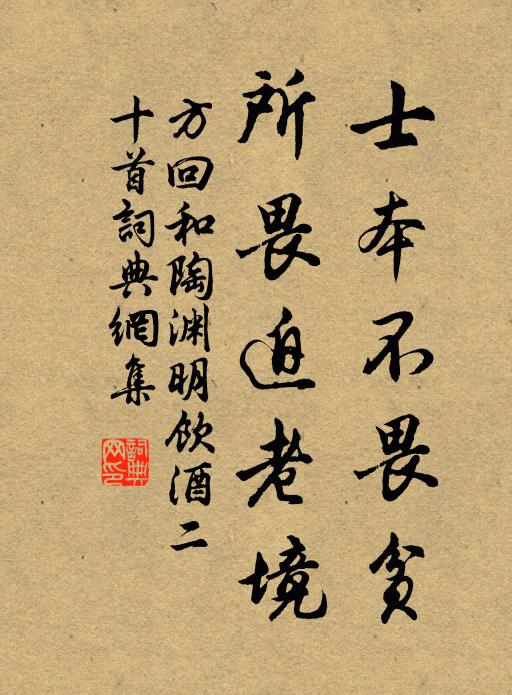 士本不畏貧
所畏迫老境
方回和陶淵明飲酒二
十首詞典網集
詞典
网印